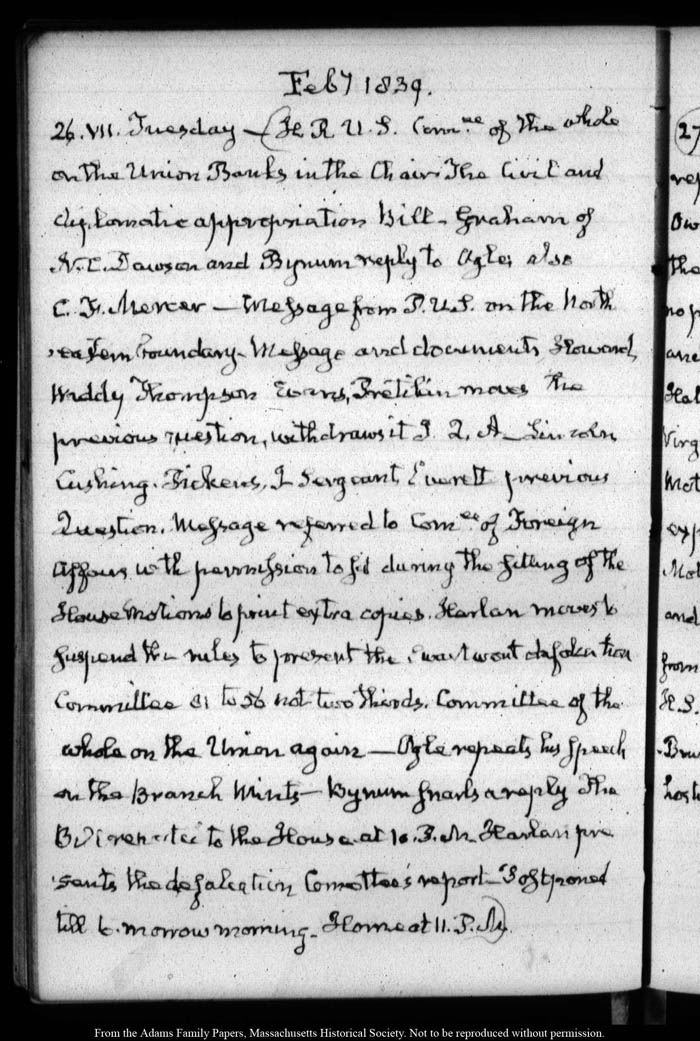 Feby 1839.
26. VII. Tuesday — (H. R. U. S. Comee of the whole
on the Union Banks in the Chair. The Civil and
diplomatic appropriation Bill. Graham of
N. C. Dawson and Bynum reply to Ogle, also
C. F. Mercer — Message from P. U. S. on the North
eastern boundary. Message and documents Howard,
Waddy Thompson Evans, Pretikin moves the
previous question, withdraws it J. Q. A. Lincoln
Cushing. Pickens, J Sergeant Everett previous
Question. Message referred to Comee of Foreign
Affairs with permission to sit during the sitting of the
House Motions to print extra copies. Harlan moves to
suspend the rules to present the Swartwout defalcation
Committee 81 to 56 not two thirds. Committee of the
whole on the Union again — Ogle repeats his speech
on the Branch Mints — Bynum snarls a reply The
Bill reported to the House at 10. P. M. Harlan pre
sents the defalcation Comottee's report — Postponed
till to-morrow morning. Home at 11. P. M).
27
rep
Ow
the
no p
and
Hal
Virg
Mot
exp
Mot
and
from
H. S.
Bra
host
From the Adams Family Papers, Massachusetts Historical Society. Not to be reproduced without permission.